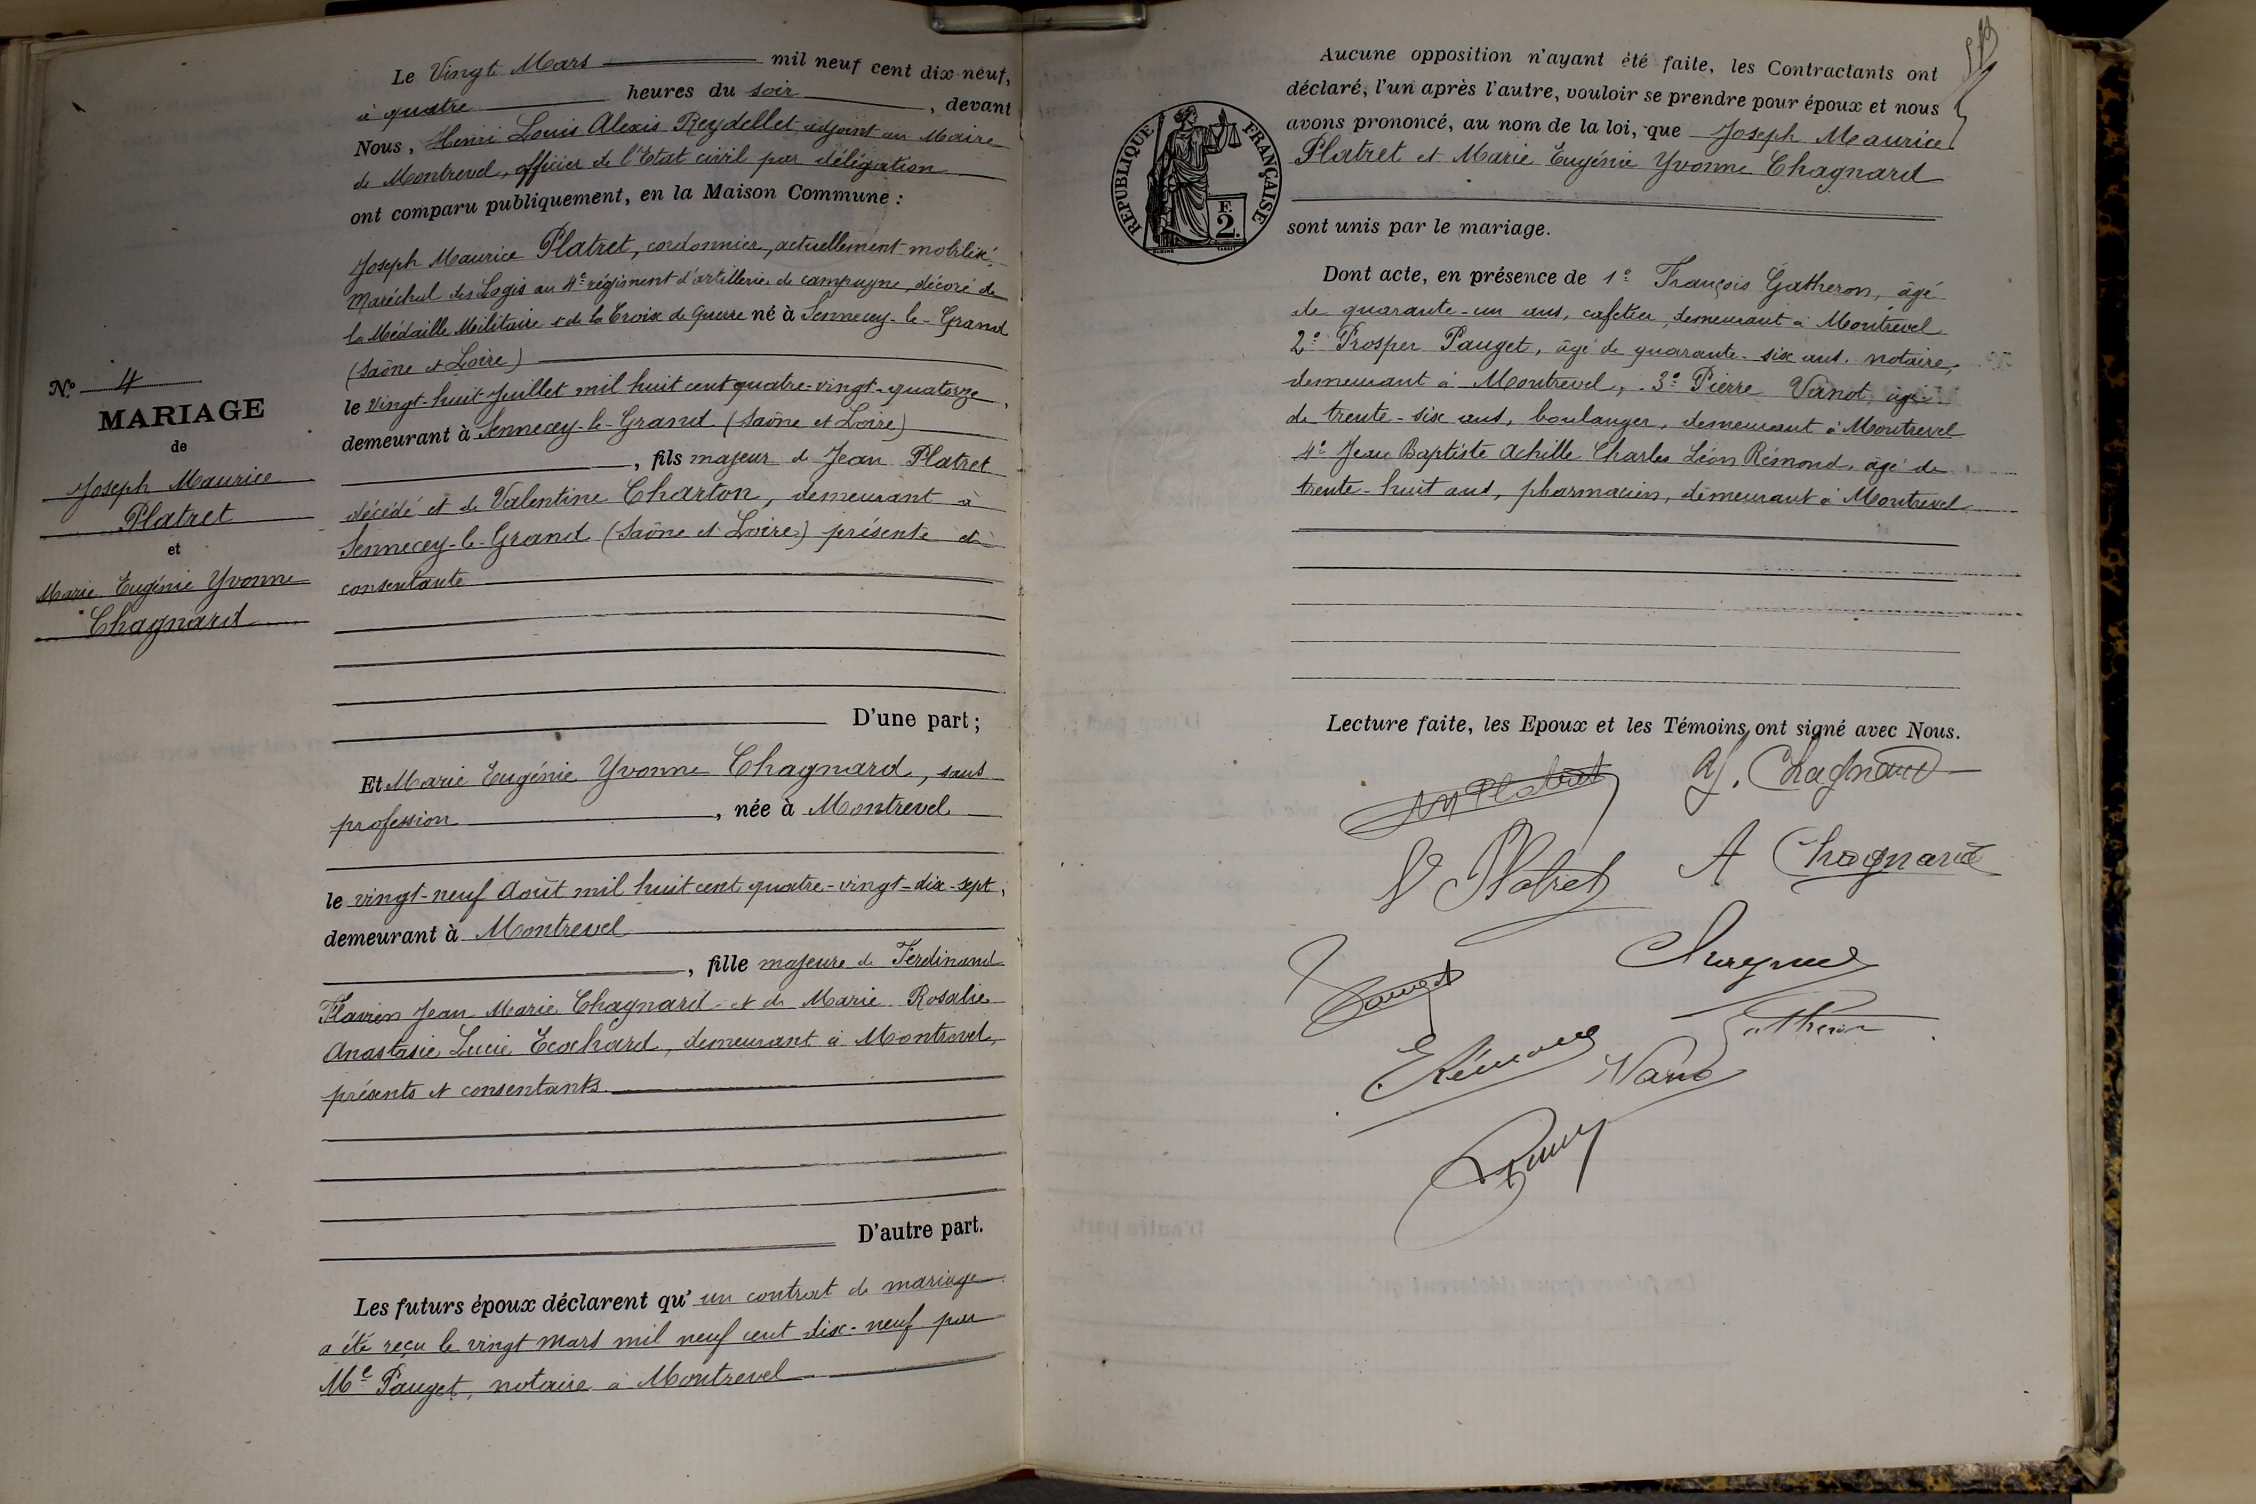 Le Vingt Mars mil neuf cent dix-neuf,
à quatre heures du soir, devant
Nous, Henri Louis Alexis Reydellet, adjoint au Maire
de Montrevel, officier de l'Etat civil par délégation
ont comparu publiquement, en la Maison Commune :
Joseph Maurice Platret, cordonnier, actuellement mobilisé,
Maréchal des Logis au 4e régiment d'artillerie de campagne, décoré de
la Médaille Militaire et de la Croix de Guerre né à Sennecey-le-Grand
(Saône et Loire)
le vingt-huit Juillet mil huit cent quatre-vingt-quatorze,
demeurant à Sennecey-le-Grand (Saône et Loire)
, fils majeur de Jean Platret
décédé et de Valentine Charton, demeurant à
Sennecey-le-Grand (Saône et Loire) présente et
consentante
D'une part ;
Et Marie Eugénie Yvonne Chagnard, sans
profession, née à Montrevel
le vingt-neuf Août mil huit cent quatre-vingt-dix-sept,
demeurant à Montrevel
, fille majeure de Ferdinand
Flavien Jean Marie Chagnard et de Marie Rosalie
Anastasie Lucie Ecochard, demeurant à Montrevel,
présents et consentants.
D'autre part.
Les futurs époux déclarent qu'un contrat de mariage
a été reçu le vingt Mars mil neuf cent dix-neuf par
Me Pauget, notaire à Montrevel
N° 4
MARIAGE
de
Joseph Maurice
Platret
et
Marie Eugénie Yvonne
Chagnard
Aucune opposition n'ayant été faite, les Contractants ont
déclaré, l'un après l'autre, vouloir se prendre pour époux et nous
avons prononcé, au nom de la loi, que Joseph Maurice
Platret et Marie Eugénie Yvonne Chagnard
sont unis par le mariage.
RÉPUBLIQUE FRANÇAISE
F.
2.
Dont acte, en présence de 1° François Gatheron, âgé
de quarante-un ans, cafetier, demeurant à Montrevel
2° Prosper Pauget, âgé de quarante-six ans, notaire,
demeurant à Montrevel, 3° Pierre Vanot, âgé
de trente-six ans, boulanger, demeurant à Montrevel
4° Jean Baptiste Achille Charles Léon Rémond, âgé de
trente-huit ans, pharmacien, demeurant à Montrevel
Lecture faite, les Epoux et les Témoins, ont signé avec Nous.
JM Platret
Y. Chagnard
V Platret
A Chagnard
Pauget
Chagnard
Gatheron
Rémond
Vanot